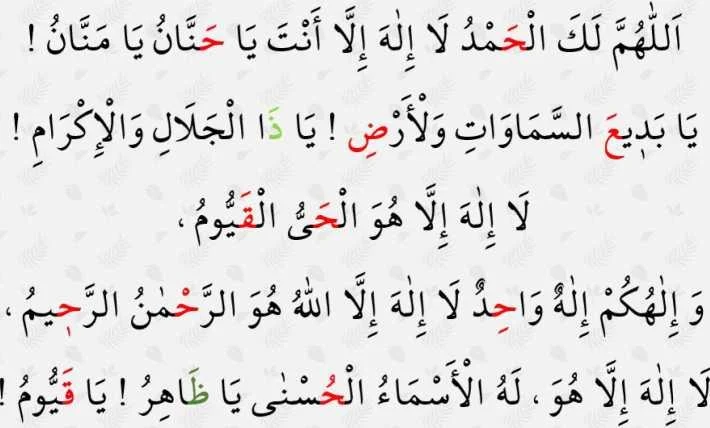 اَللّٰهُمَّ لَكَ الْحَمْدُ لَا إِلٰهَ إِلَّا أَنْتَ يَا حَنَّانُ يَا مَنَّانُ !
يَا بَدٖيعَ السَّمَاوَاتِ وَلْأَرْضِ ! يَا ذَا الْجَلَالِ وَالْإِكْرَامِ !
لَا إِلٰهَ إِلَّا هُوَ الْحَىُّ الْقَيُّومُ ،
وَ إِلٰهُكُمْ إِلٰهٌ وَاحِدٌ لَا إِلٰهَ إِلَّا اللهُ هُوَ الرَّحْمٰنُ الرَّحٖيمُ ،
لَا إِلٰهَ إِلَّا هُوَ ، لَهُ الْأَسْمَاءُ الْحُسْنٰى يَا ظَاهِرُ ! يَا قَيُّومُ !